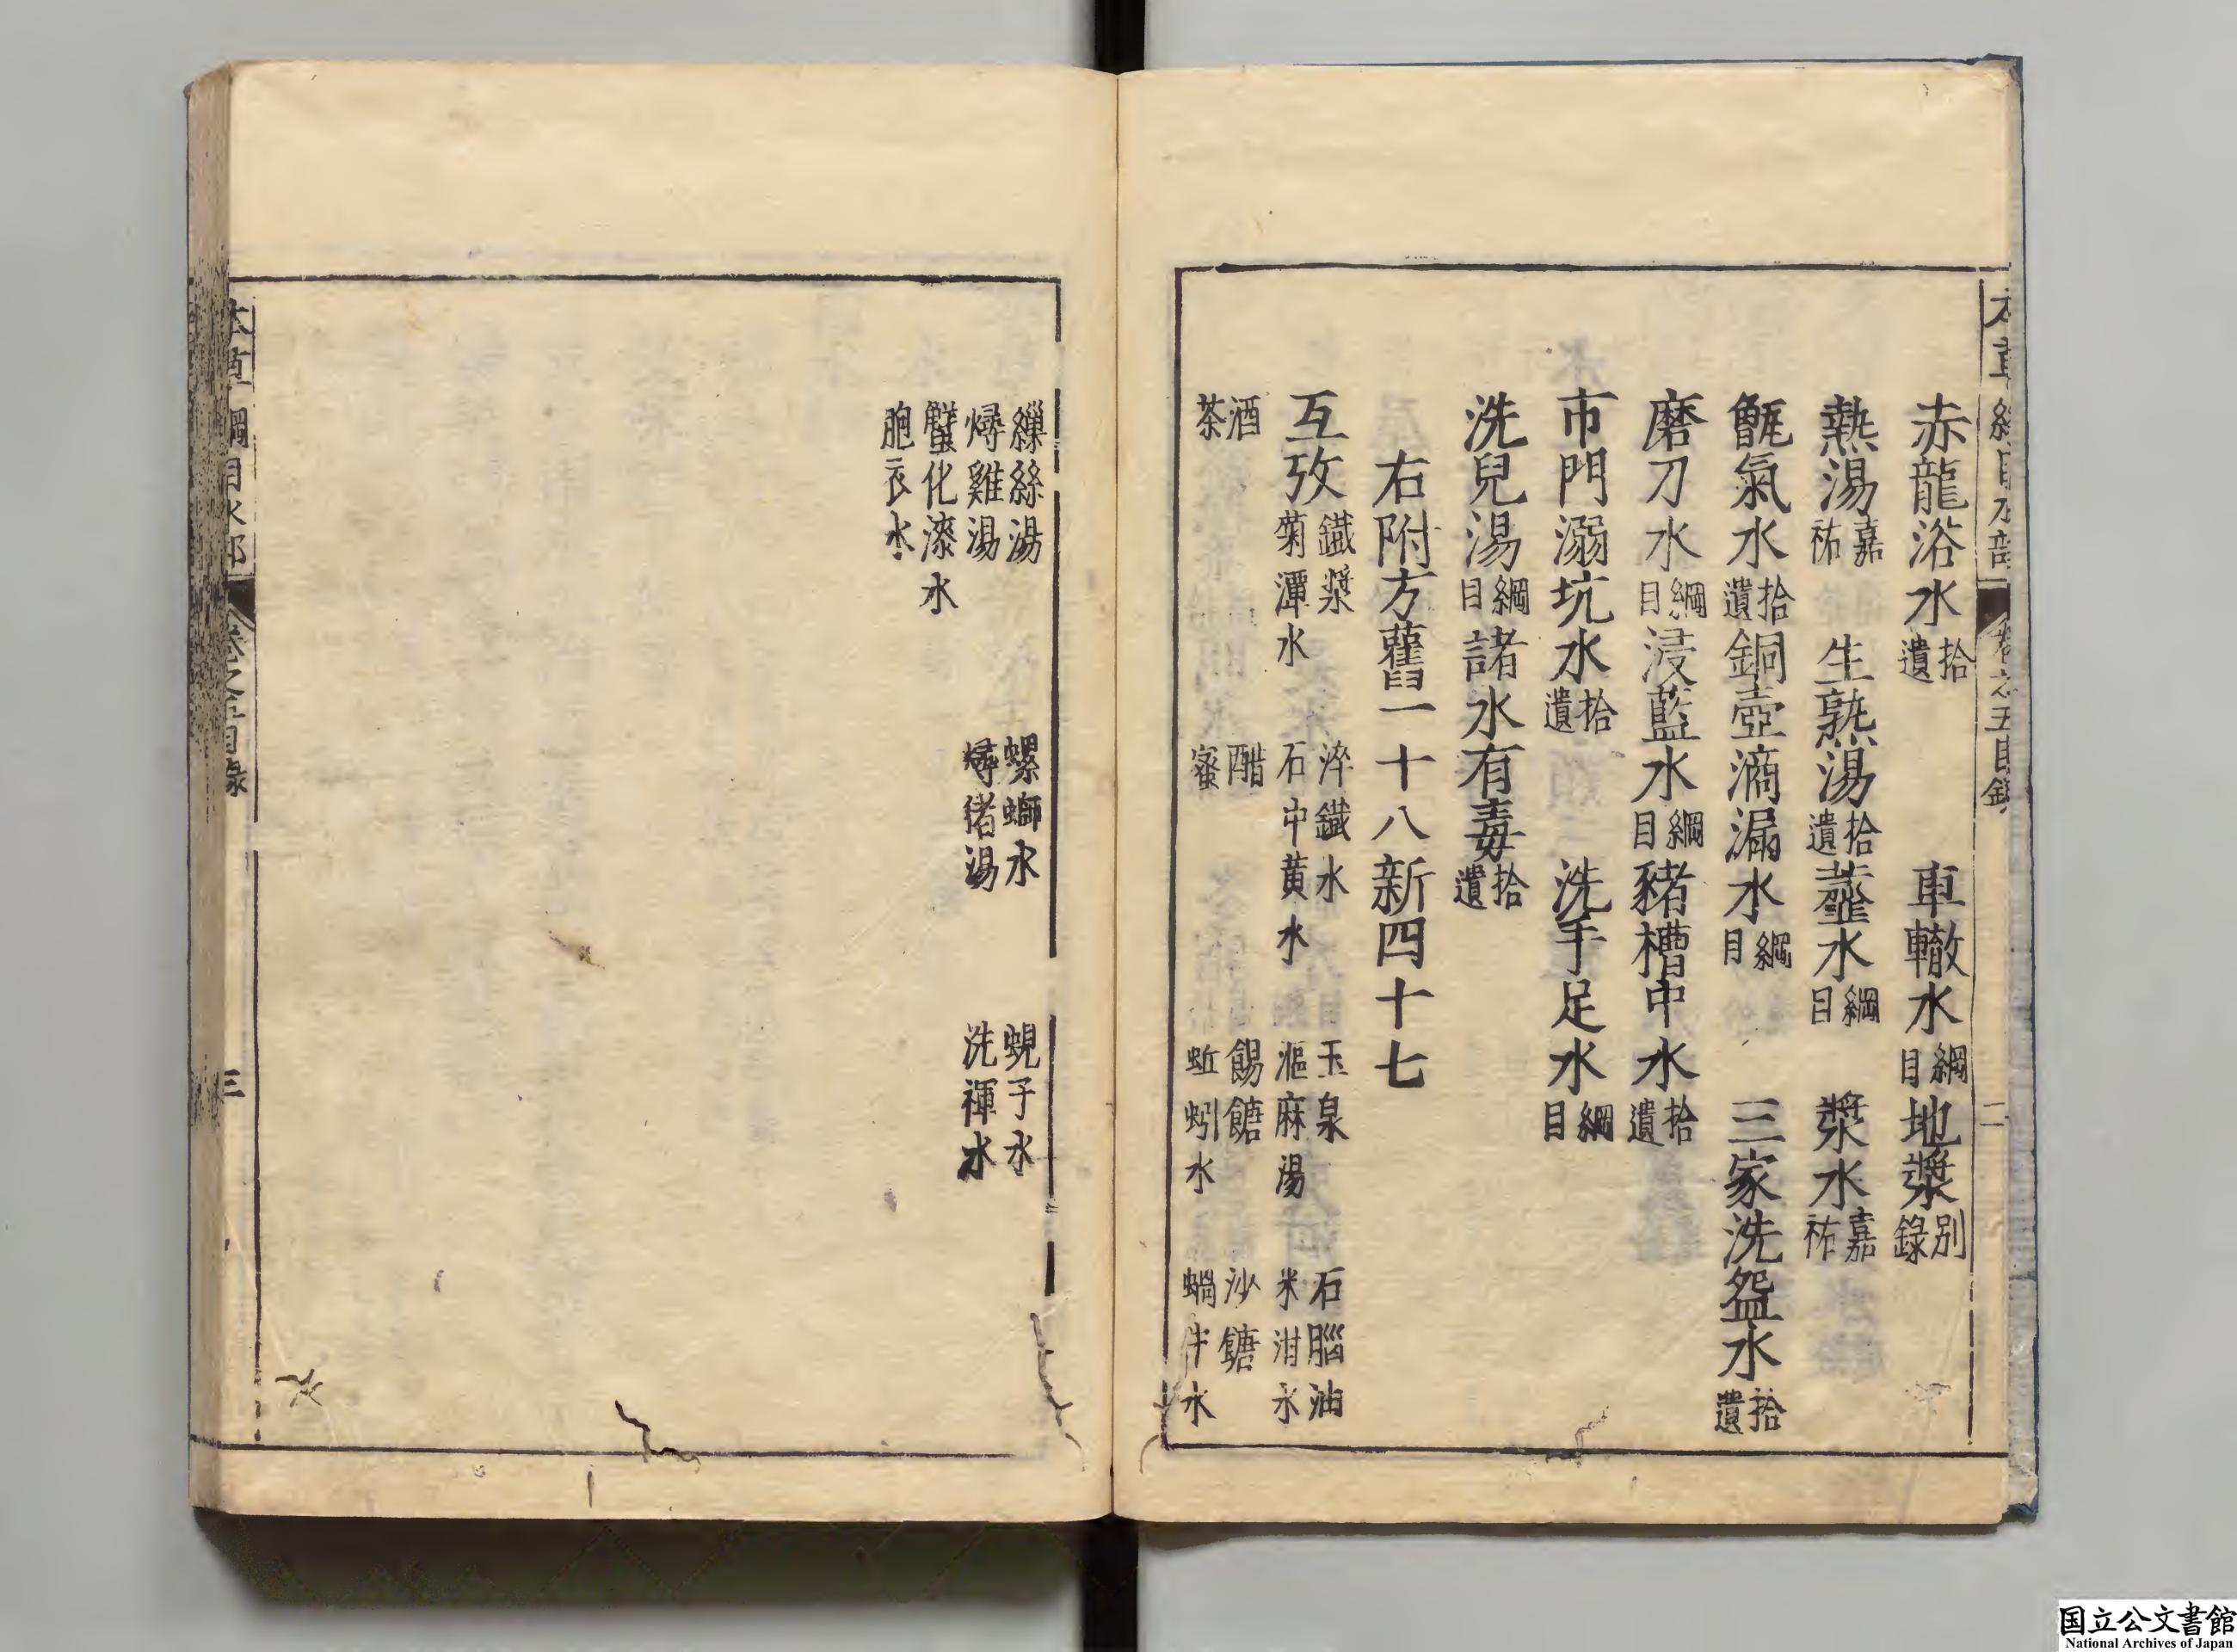 赤龍浴水拾遺　車轍水綱目地漿別錄
熱湯嘉祐　生熟湯拾遺虀水綱目　漿水嘉祐
甑氣水拾遺銅壺滴漏水綱目　三家洗盌水拾遺
磨刀水綱目浸藍水綱目豬槽中水拾遺
市門溺坑水拾遺　洗手足水綱目
洗兒湯綱目諸水有毒拾遺
右附方舊一十八新四十七
互攷鐵漿　淬鐵水　玉泉　石腦油
菊潭水　石中黃水　漚麻湯　米泔水
酒　醋　餳餹　沙餹
茶　蜜　蚯蚓水　蝸牛水
繅絲湯　螺螄水　蜆子水
燖雞湯　燖豬湯　洗褌水
蟹化漆水
胞衣水
本草綱目水部　卷之五目錄　三
国立公文書館
National Archives of Japan